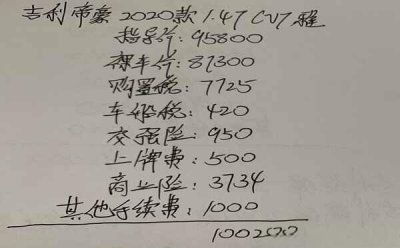 吉利帝豪 2020款 1.4T CVT 雅
指导价: 95800
裸车价: 87300
购置税: 7725
车船税: 420
交强险: 950
上牌费: 500
商业险: 3734
其他手续费: 1000
100200